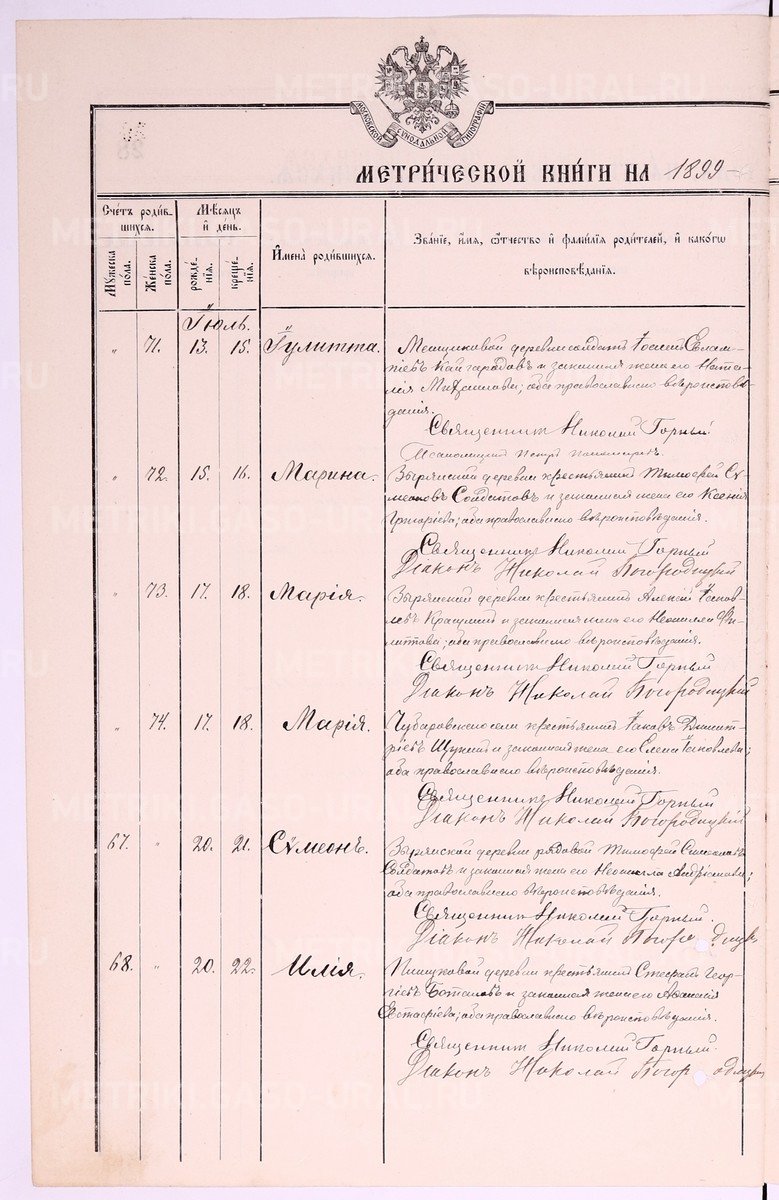 МОСКОВСКОЙ СѴНОДАЛЬНОЙ ТИПОГРАФІИ
МЕТРИ́ЧЕСКОЙ КНИ́ГИ НА 1899
Сче́тъ роди́в-
шихся.
Мꙋ́жеска по́ла.
Же́нска по́ла.
Мѣ́сяцъ
и҆ де́нь.
рожде́-
нїя.
креще́-
нїя.
И҆мена̀ роди́вшихся.
Зва́нїе, и҆́мя, ѻ҆́тчество и҆ фами́лїя роди́телей, и҆ како́гѡ
вѣроисповѣ́данїя.
Іюль.
„ 71. 13. 15. Іулитта.
деревни солдатъ
и законная жена его Ната-
лія; оба православнаго вѣроисповѣ-
данія.
Священникъ Николай Горный.
„ 72. 15. 16. Марина.
Зырянской деревни крестьянинъ Тимофей Сѵ-
меоновъ Солдатовъ и законная жена его Ксенія
Григоріева; оба православнаго вѣроисповѣданія.
Священникъ Николай Горный
Діаконъ Николай Богородицкій
„ 73. 17. 18. Марія.
Зырянской деревни крестьянинъ Алексій Іаков-
левъ и законная жена его Неонилла Фи-
липпова; оба православнаго вѣроисповѣданія.
Священникъ Николай Горный
Діаконъ Николай Богородицкій
„ 74. 17. 18. Марія.
Чубаровскаго села крестьянинъ Іаковъ Димит-
ріевъ и законная жена его Елена Іаковлева;
оба православнаго вѣроисповѣданія.
Священникъ Николай Горный
Діаконъ Николай Богородицкій
67. „ 20. 21. Сѵмеонъ.
Зырянской деревни рядовой Тимофей Симеоновъ
Солдатовъ и законная жена его Неонилла;
оба православнаго вѣроисповѣданія.
Священникъ Николай Горный.
Діаконъ Николай Богородицкій
68. „ 20. 22. Илія.
деревни крестьянинъ Геор-
гіевъ и законная жена его
Евстафіева; оба православнаго вѣроисповѣданія.
Священникъ Николай Горный.
Діаконъ Николай Богородицкій